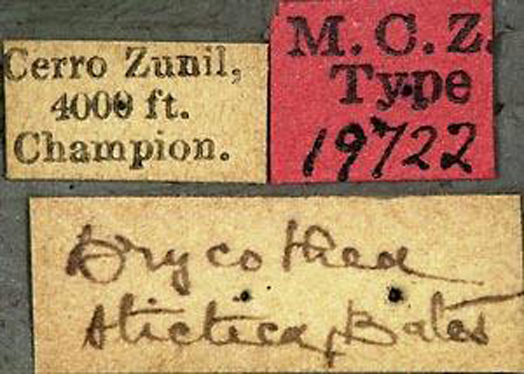 Cerro Zunil,
4000 ft.
Champion.
M. C. Z.
Type
19722
Drycothea
stictica, Bates